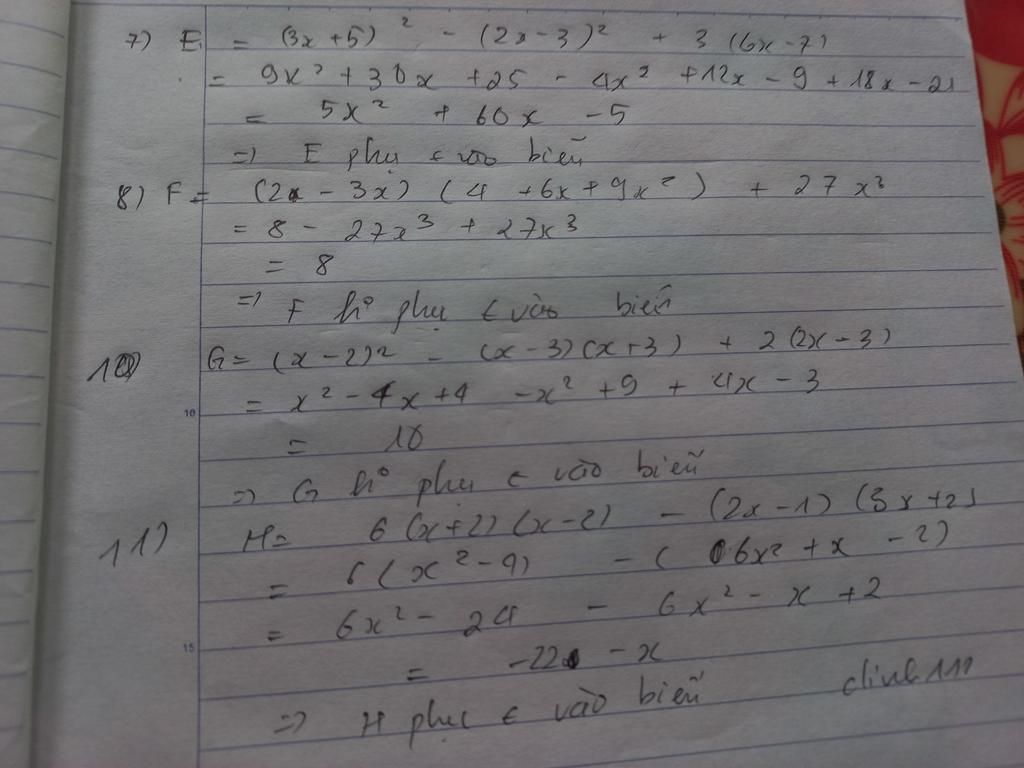 7) E = (3x + 5)² - (2x - 3)² + 3 (6x - 7)
= 9x² + 30x + 25 - 4x² + 12x - 9 + 18x - 21
= 5x² + 60x - 5
=> E phụ ∈ vào biến
8) F = (2 - 3x) (4 + 6x + 9x²) + 27x³
= 8 - 27x³ + 27x³
= 8
=> F k° phụ ∈ vào biến
10) G = (x - 2)² - (x - 3)(x + 3) + 2(2x - 3)
= x² - 4x + 4 - x² + 9 + 4x - 3
= 10
=> G k° phụ ∈ vào biến
11) H = 6(x + 2)(x - 2) - (2x - 1)(3x + 2)
= 6(x² - 4) - (6x² + x - 2)
= 6x² - 24 - 6x² - x + 2
= -22 - x
=> H phụ ∈ vào biến
10
15